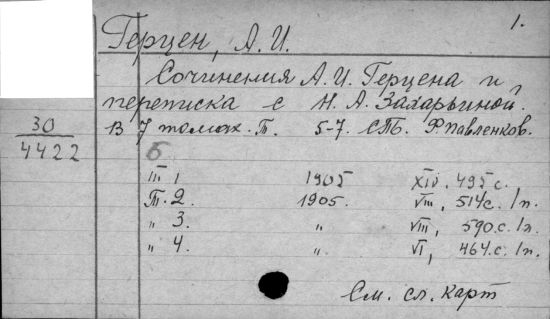 1.
Герцен, А. И.
Сочинения А. И. Герцена и
переписка с Н. А. Захарьиной.
30
4422
В 7 томах. Т. 5-7. СПб. Ф. Павленков.
6
1 1905 XIV, 495 с.
Т. 2. 1905. VIII, 514 с. 1 л.
" 3. " VIII, 590. с. 1 л.
" 4. " VI, 464. с. 1 л.
См. сл. карт